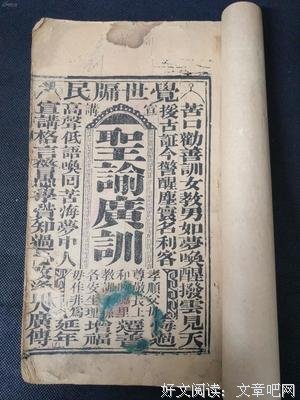 覺世牖民
宣講
苦口勸善訓女教男如夢喚醒撥雲見天
援古証今警醒塵寰名利客
聖諭廣訓
孝順父
尊敬長上
和睦鄉里
教訓
各安生理
毋作非為
增福
延年
高聲低語喚回苦海夢中人
宣講格言
知過
廣傳
好文阅读：文章吧网